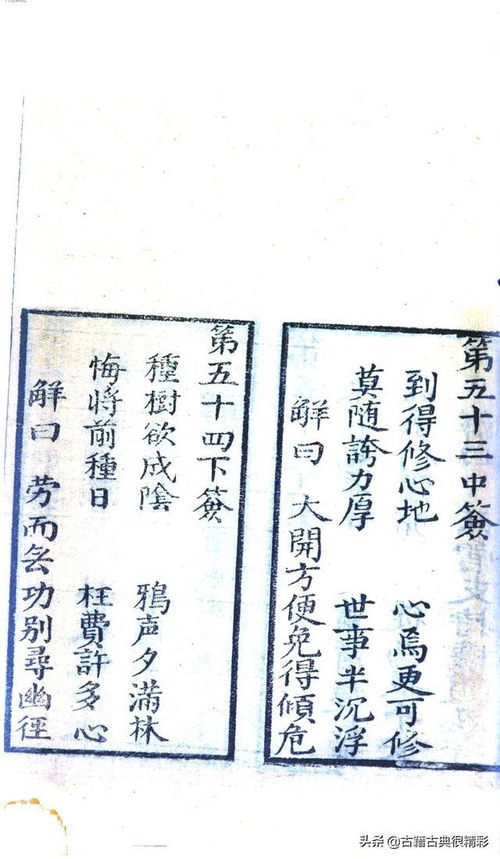 第五十三中簽
到得修心地　心焉更可修
莫随誇力厚　世事半沉浮
解曰　大開方便免得傾危
第五十四下簽
種樹欲成陰　鴉声夕滿林
悔將前種日　枉費許多心
解曰　劳而无功别尋幽徑
头条 @古籍古典很精彩